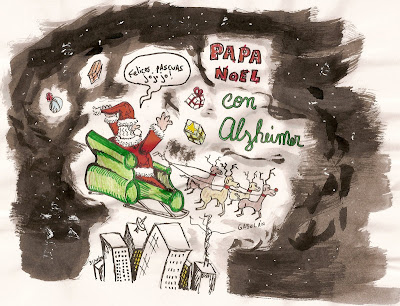 FELICES PASCUAS
JO JO JO!
PAPA
NOEL
con
Alzheimer